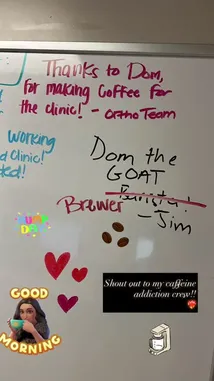 Thanks to Dom,
for making Coffee for
the clinic! - Ortho Team
working
d Clinic!
ded!!
Dom the
GOAT
Barista!
Brewer
- Jim
JUMP
DAY
Shout out to my caffeine
addiction crew!!
GOOD
MORNING